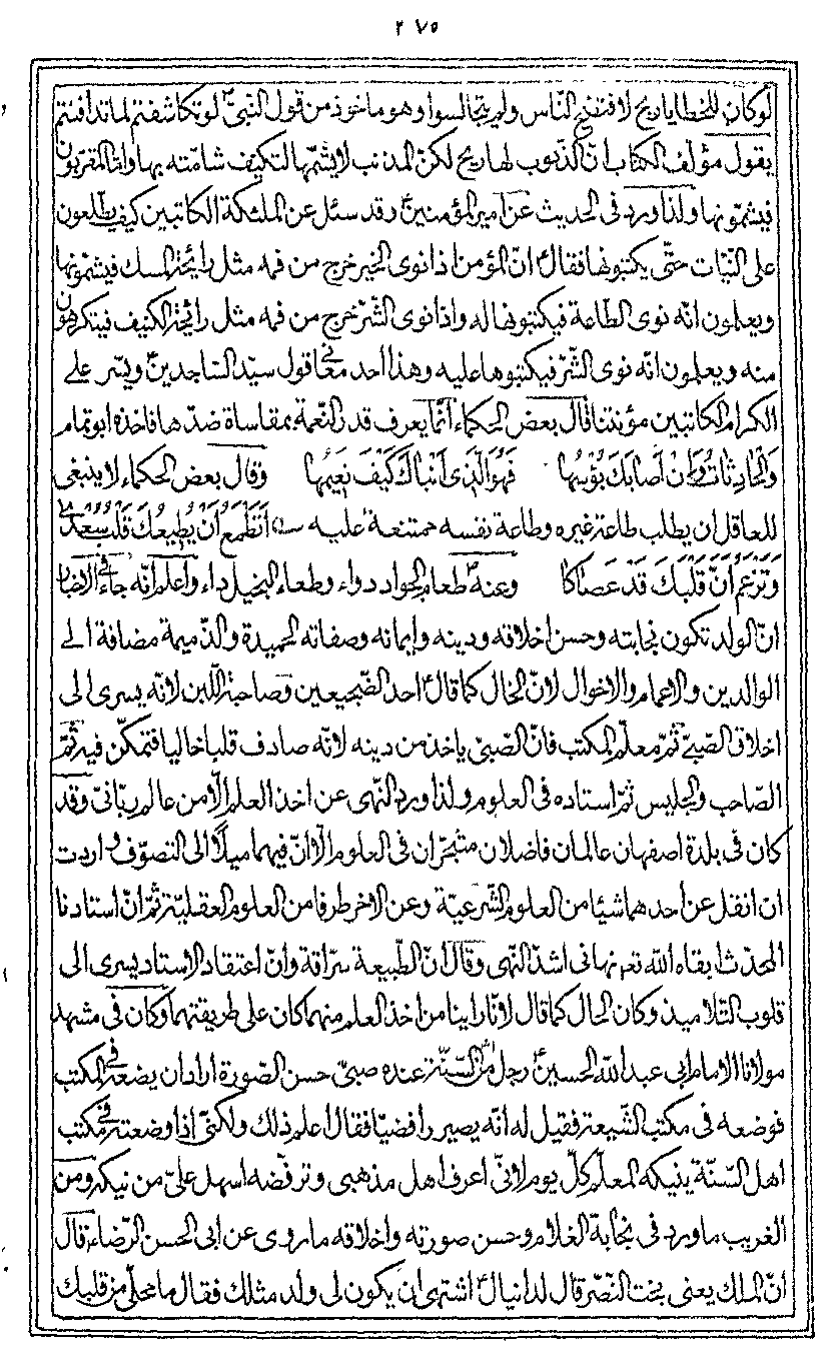 ٢٧٥
لو كان للخطايا ريح لافتضح الناس ولم يتجالسوا وهو ماخوذ من قول النبىّ ص لو تكاشفتم لما تدافنتم
يقول مؤلف الكتاب انّ الذنوب لها ريح لكنّ المذنب لا يشمّها لتكيّف شامّته بها وامّا المقرّبون
فيشمّونها ولذا ورد فى الحديث عن امير المؤمنين ع وقد سئل عن الملئكة الكاتبين كيف يطّلعون
على النيّات حتّى يكتبونها فقال ع انّ المؤمن اذا نوى الخير خرج من فمه مثل رايحة المسك فيشمّونها
ويعلمون انّه نوى الطاعة فيكتبونها له واذا نوى الشّر خرج من فمه مثل رائحة الكنيف فيتكرهون
منه ويعلمون انّه نوى الشّر فيكتبوها عليه وهذا احد معانى قول سيّد الساجدين ع ويسّر على
الكرام الكاتبين مؤنتنا قال بعض الحكماء انّما يعرف قدر النّعمة بمقاساة ضدّها فاخذه ابو تمام
والحادثات وان أصابك بؤسها فهو الّذى أنباك كيف نعيمها وقال بعض الحكماء لا ينبغى
للعاقل ان يطلب طاعة غيره وطاعة نفسه ممتنعة عليه أتطمع أن يطيعك قلب سعدى
وتزعم أنّ قلبك قد عصاكا وعنه ص طعام الجواد دواء وطعام البخيل داء واعلم انّه جاء فى الاخبار
انّ الولد تكون نجابته وحسن اخلاقه ودينه وايمانه وصفاته الحميدة والذّميمة مضافة الى
الوالدين والاعمام والاخوال لانّ الخال كما قال ع احد الضّجيعين وصاحبة اللّبن لانّه يسرى الى
اخلاق الصّبىّ ثمّ معلّم المكتب فانّ الصّبىّ ياخذ من دينه لانّه صادف قلبا خاليا فتمكّن فيه ثمّ
الصّاحب والجليس ثمّ استاده فى العلوم ولذا ورد النّهى عن اخذ العلم الّا من عالم ربّانىّ وقد
كان فى بلدة اصفهان عالمان فاضلان متبحّران فى العلوم الّا انّ فيهما ميلًا الى التصوّف واردت
ان انقل عن احدهما شيئا من العلوم الشّرعيّة وعن الاخر طرفا من العلوم العقليّة ثمّ انّ استادنا
المحدّث ابقاه الله تعم نهانى اشدّ النّهى وقال انّ الطّبيعة سرّاقة وانّ اعتقاد الاستاد يسرى الى
قلوب التّلاميذ وكان الحال كما قال لانّا راينا من اخذ العلم منهما كان على طريقتهما وكان فى مشهد
مولانا الامام ابى عبد الله الحسين ع رجل من السّنّة عنده صبىّ حسن الصّورة اراد ان يضعه فى المكتب
فوضعه فى مكتب الشّيعة فقيل له انّه يصير رافضيّا فقال اعلم ذلك ولكنّى اذا وضعته فى مكتب
اهل السّنّة ينيكه المعلّم كلّ يوم لانّى اعرف اهل مذهبى وترفّضه اسهل علىّ من نيكه ومن
الغريب ما ورد فى نجابة الغلام وحسن صورته واخلاقه ما روى عن ابى الحسن الرّضاء ع قال
انّ الملك يعنى بخت النّصّر قال لدانيال ع اشتهى ان يكون لى ولد مثلك فقال ما محلّى من قلبك